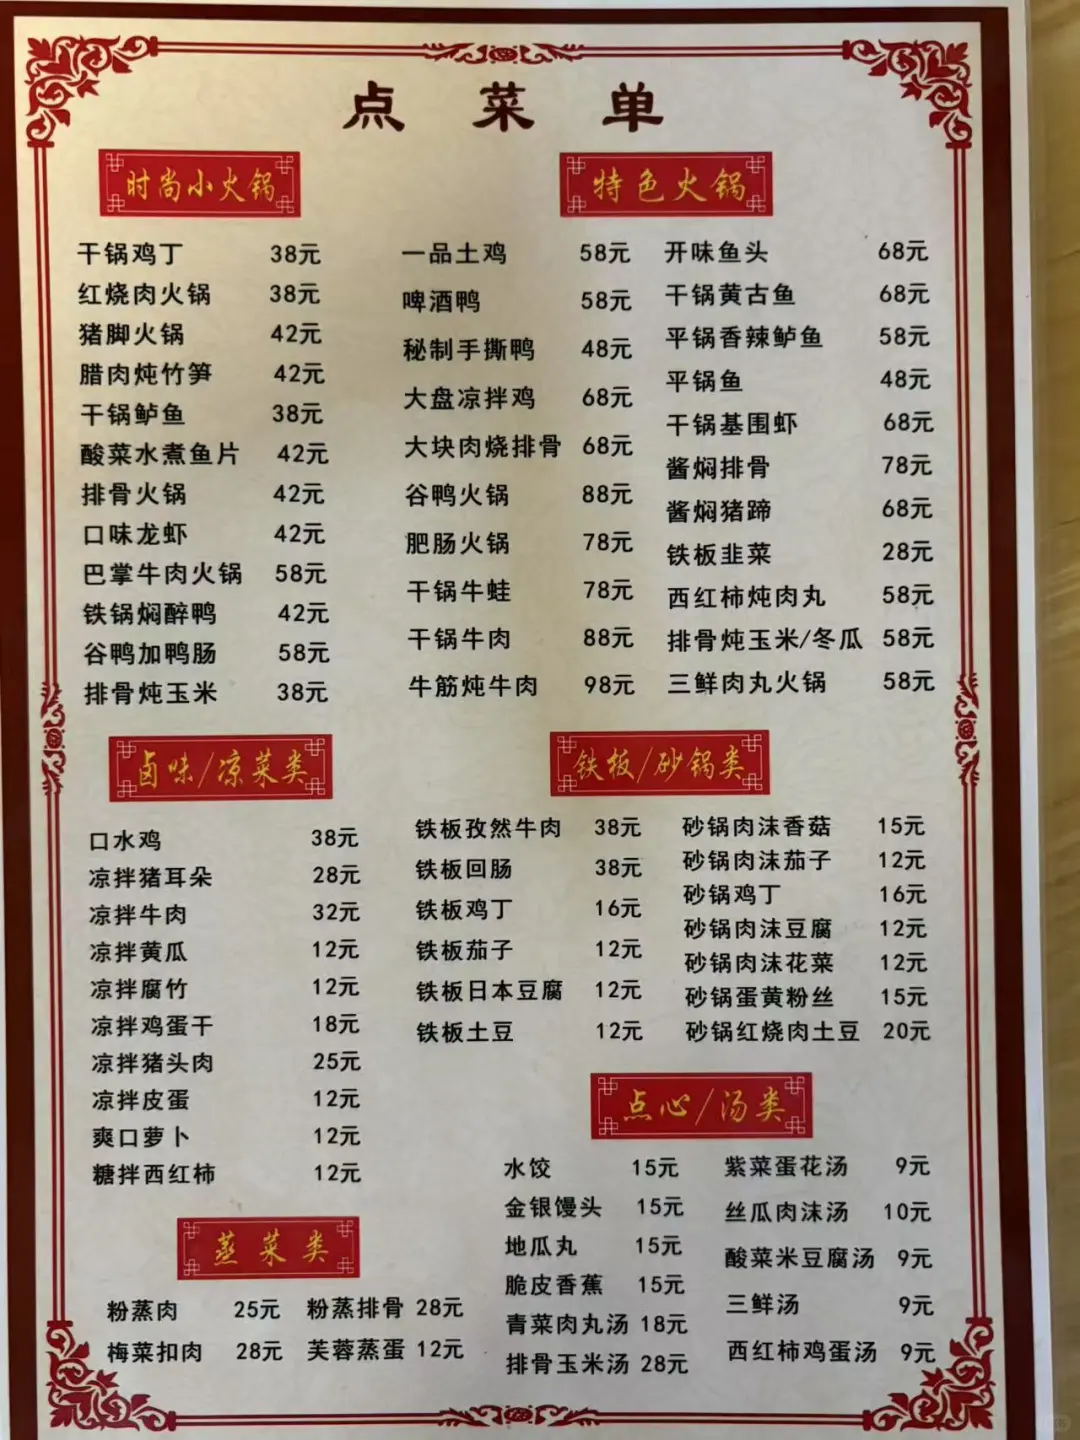 点菜单
时尚小火锅
干锅鸡丁 38元
红烧肉火锅 38元
猪脚火锅 42元
腊肉炖竹笋 42元
干锅鲈鱼 38元
酸菜水煮鱼片 42元
排骨火锅 42元
口味龙虾 42元
巴掌牛肉火锅 58元
铁锅焖醉鸭 42元
谷鸭加鸭肠 58元
排骨炖玉米 38元
特色火锅
一品土鸡 58元
啤酒鸭 58元
秘制手撕鸭 48元
大盘凉拌鸡 68元
大块肉烧排骨 68元
谷鸭火锅 88元
肥肠火锅 78元
干锅牛蛙 78元
干锅牛肉 88元
牛筋炖牛肉 98元
开味鱼头 68元
干锅黄古鱼 68元
平锅香辣鲈鱼 58元
平锅鱼 48元
干锅基围虾 68元
酱焖排骨 78元
酱焖猪蹄 68元
铁板韭菜 28元
西红柿炖肉丸 58元
排骨炖玉米/冬瓜 58元
三鲜肉丸火锅 58元
卤味/凉菜类
口水鸡 38元
凉拌猪耳朵 28元
凉拌牛肉 32元
凉拌黄瓜 12元
凉拌腐竹 12元
凉拌鸡蛋干 18元
凉拌猪头肉 25元
凉拌皮蛋 12元
爽口萝卜 12元
糖拌西红柿 12元
铁板/砂锅类
铁板孜然牛肉 38元
铁板回肠 38元
铁板鸡丁 16元
铁板茄子 12元
铁板日本豆腐 12元
铁板土豆 12元
砂锅肉沫香菇 15元
砂锅肉沫茄子 12元
砂锅鸡丁 16元
砂锅肉沫豆腐 12元
砂锅肉沫花菜 12元
砂锅蛋黄粉丝 15元
砂锅红烧肉土豆 20元
蒸菜类
粉蒸肉 25元
梅菜扣肉 28元
粉蒸排骨 28元
芙蓉蒸蛋 12元
点心/汤类
水饺 15元
金银馒头 15元
地瓜丸 15元
脆皮香蕉 15元
青菜肉丸汤 18元
排骨玉米汤 28元
紫菜蛋花汤 9元
丝瓜肉沫汤 10元
酸菜米豆腐汤 9元
三鲜汤 9元
西红柿鸡蛋汤 9元